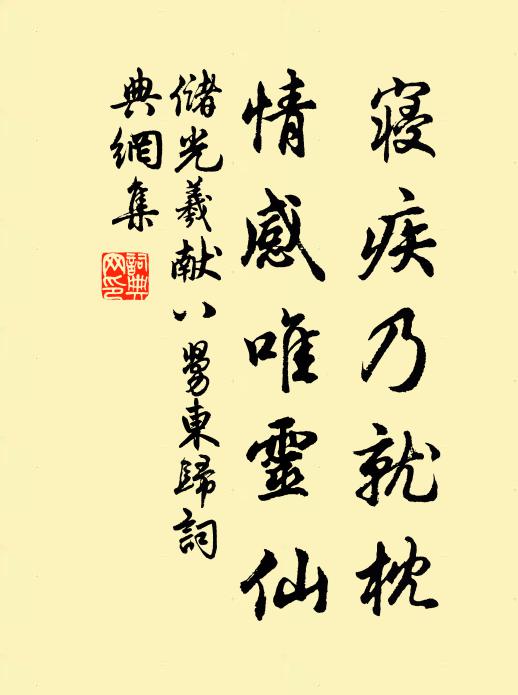 寢疾乃就枕
情感唯靈仙
儲光羲献八舅東歸詞
典網集
詞典网印